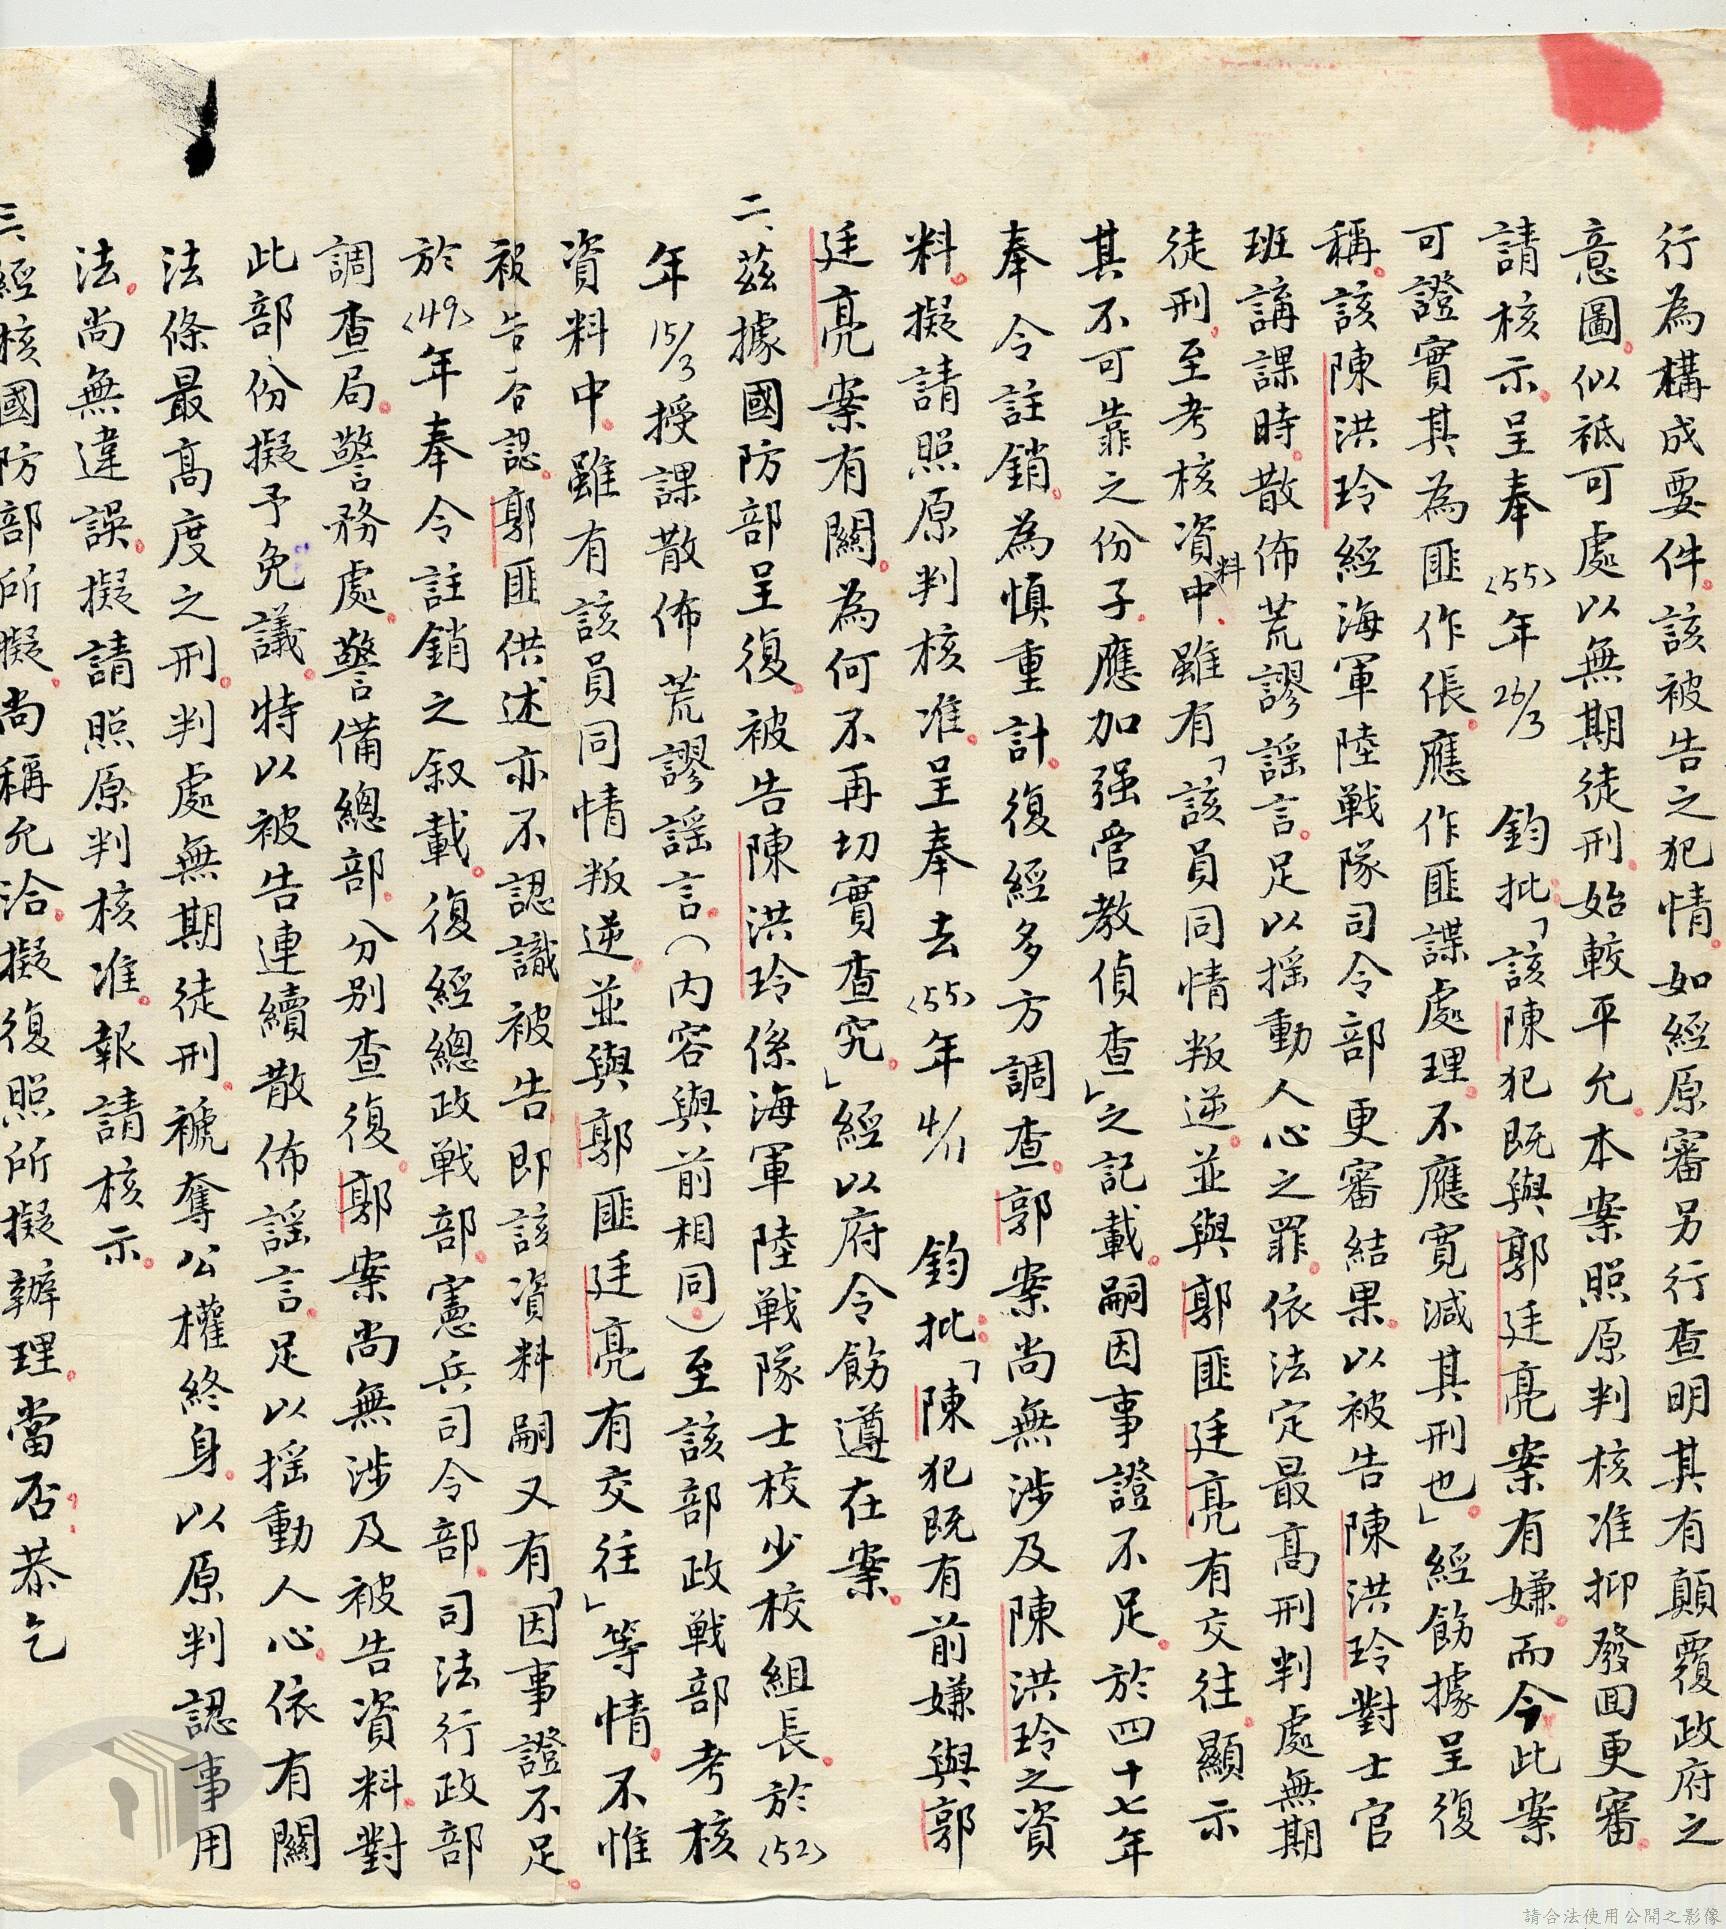 行為構成要件。該被告之犯情。如經原審另行查明其有顛覆政府之
意圖。似祇可處以無期徒刑。始較平允。本案照原判核准抑發回更審。
請核示。呈奉〈55〉年26/3 鈞批。「該陳犯既與郭廷亮案有嫌。而今此案
可證實其為匪作倀。應作匪諜處理。不應寬減其刑也。」經飭據呈復
稱。該陳洪玲經海軍陸戰隊司令部更審結果。以被告陳洪玲對士官
班講課時。散佈荒謬謠言。足以搖動人心之罪。依法定最高刑判處無期
徒刑。至考核資料中。雖有「該員同情叛逆。並與郭匪廷亮有交往。顯示
其不可靠之份子。應加强管教偵查」之記載。嗣因事證不足。於四十七年
奉令註銷。為慎重計。復經多方調查。郭案尚無涉及陳洪玲之資
料。擬請照原判核准。呈奉去〈55〉年4/11 鈞批。「陳犯既有前嫌與郭
廷亮案有關。為何不再切實查究」經以府令飭遵在案。
二、茲據國防部呈復。被告陳洪玲係海軍陸戰隊士校少校組長。於〈52〉
年15/3授課散佈荒謬謠言。(內容與前相同。)至該部政戰部考核
資料中。雖有該員同情叛逆。並與郭匪廷亮有交往」等情。不惟
被告否認。郭匪供述亦不認識被告。即該資料嗣又有「因事證不足。
於〈49〉年奉令註銷之叙載。復經總政戰部。憲兵司令部。司法行政部
調查局。警務處。警備總部。分別查復。郭案尚無涉及被告資料。對
此部份擬予免議。特以被告連續散佈謠言。足以搖動人心。依有關
法條最高度之刑。判處無期徒刑。褫奪公權終身。以原判認事用
法。尚無違誤。擬請照原判核准。報請核示。
三、經核國防部所擬。尚稱允洽。擬復照所擬辦理。當否。恭乞
請合法使用公開之影像